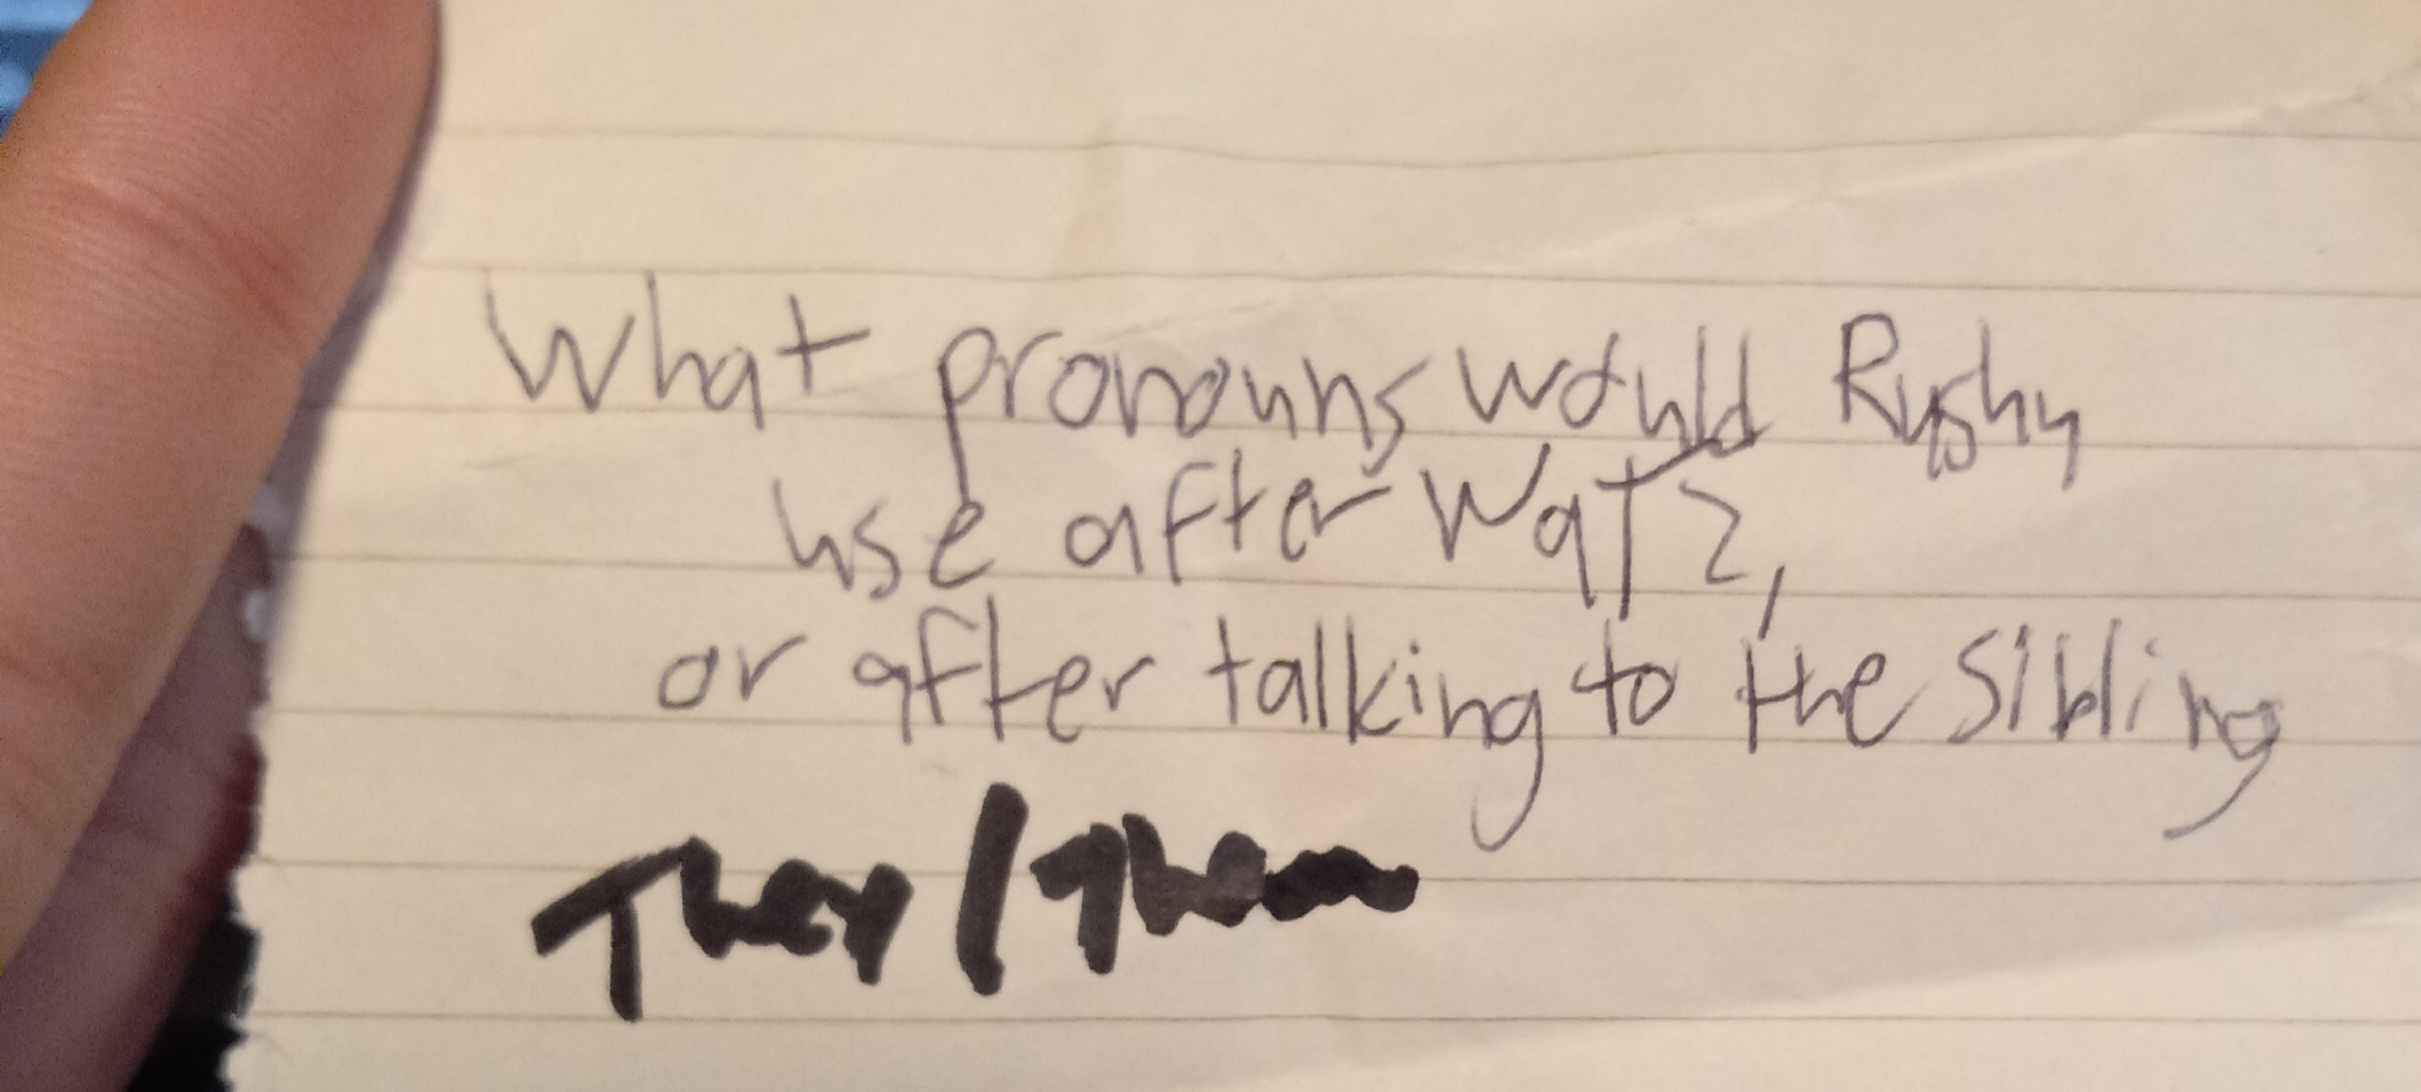 What pronouns would Rushy
use after WaT2,
or after talking to the sibling
They/Them